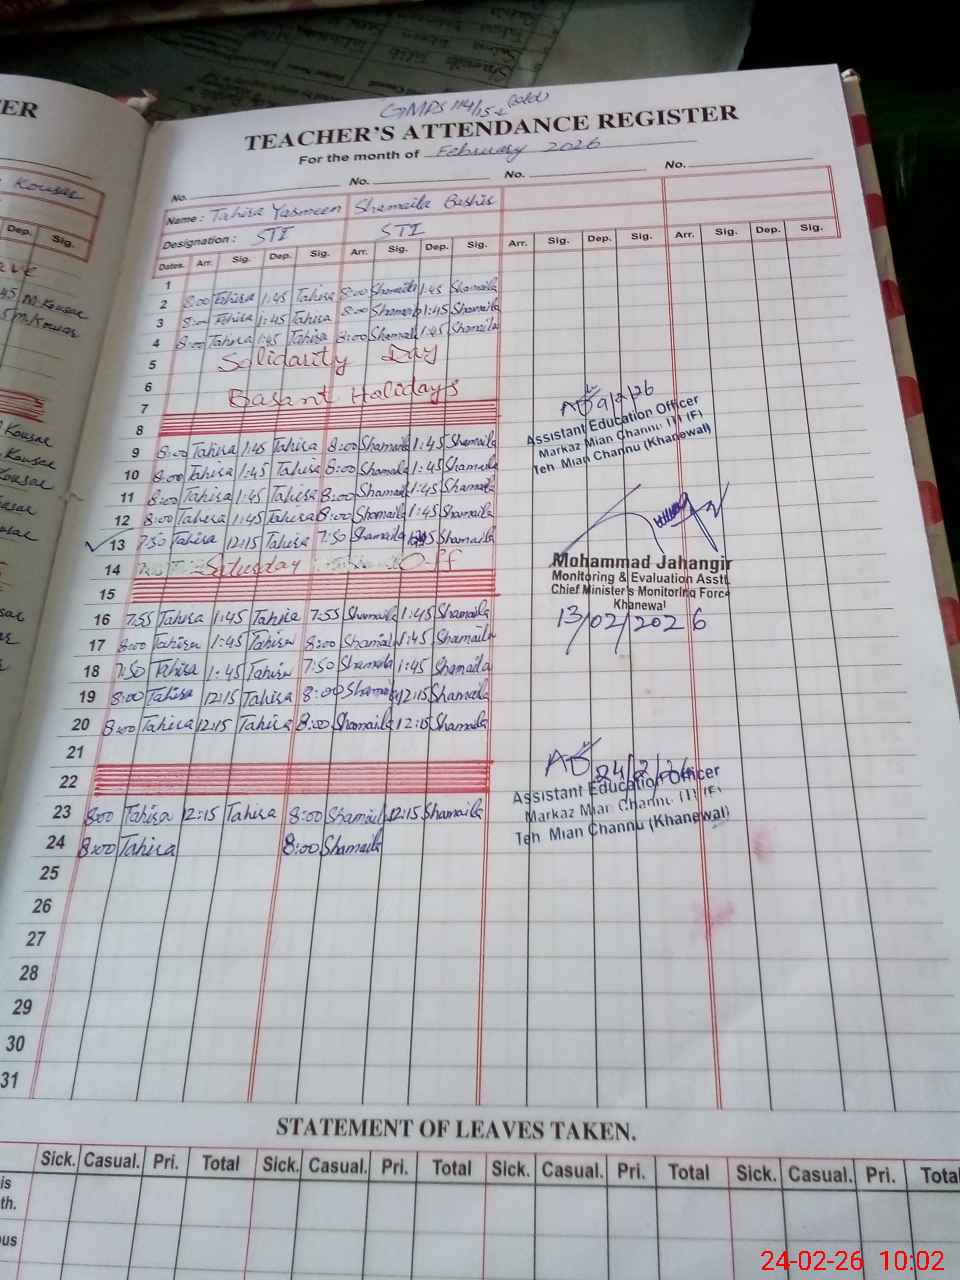 GMPS 114/15-L (old)
TEACHER'S ATTENDANCE REGISTER
For the month of February 2026
No. No. No. No.
Name : Tahira Yasmeen Shamaila Bashir
Designation : STI STI
Dates. Arr. Sig. Dep. Sig. Arr. Sig. Dep. Sig. Arr. Sig. Dep. Sig. Arr. Sig. Dep. Sig.
1
2 8:00 Tahira 1:45 Tahira 8:00 Shamaila 1:45 Shamaila
3 8:00 Tahira 1:45 Tahira 8:00 Shamaila 1:45 Shamaila
4 8:00 Tahira 1:45 Tahira 8:00 Shamaila 1:45 Shamaila
5 Solidarity Day
6
Basant Holidays
7
8
9 8:00 Tahira 1:45 Tahira 8:00 Shamaila 1:45 Shamaila
10 8:00 Tahira 1:45 Tahira 8:00 Shamaila 1:45 Shamaila
11 8:00 Tahira 1:45 Tahira 8:00 Shamaila 1:45 Shamaila
12 8:00 Tahira 1:45 Tahira 8:00 Shamaila 1:45 Shamaila
13 7:50 Tahira 12:15 Tahira 7:50 Shamaila Shamaila
14 Saturday Off
15
16 7:55 Tahira 1:45 Tahira 7:55 Shamaila 1:45 Shamaila
17 8:00 Tahira 1:45 Tahira 8:00 Shamaila 1:45 Shamaila
18 7:50 Tahira 1:45 Tahira 7:50 Shamaila 1:45 Shamaila
19 8:00 Tahira 12:15 Tahira 8:00 Shamaila 12:15 Shamaila
20 8:00 Tahira 12:15 Tahira 8:00 Shamaila 12:15 Shamaila
21
22
23 8:00 Tahira 12:15 Tahira 8:00 Shamaila 12:15 Shamaila
24 8:00 Tahira 8:00 Shamaila
25
26
27
28
29
30
31
9/2/26
Assistant Education Officer
Markaz Mian Channu
Teh Mian Channu (Khanewal)
Mohammad Jahangir
Monitoring & Evaluation Asstt
Chief Minister's Monitoring Force
Khanewal
13/02/2026
24/2/26
Assistant Education Officer
Markaz Mian Channu
Teh Mian Channu (Khanewal)
STATEMENT OF LEAVES TAKEN.
Sick. Casual. Pri. Total Sick. Casual. Pri. Total Sick. Casual. Pri. Total Sick. Casual. Pri. Total
is
th.
ous
ER
Kousar
Dep. Sig.
M.Kousar
M.Kousar
Kousar
Kousar
Kousar
24-02-26 10:02